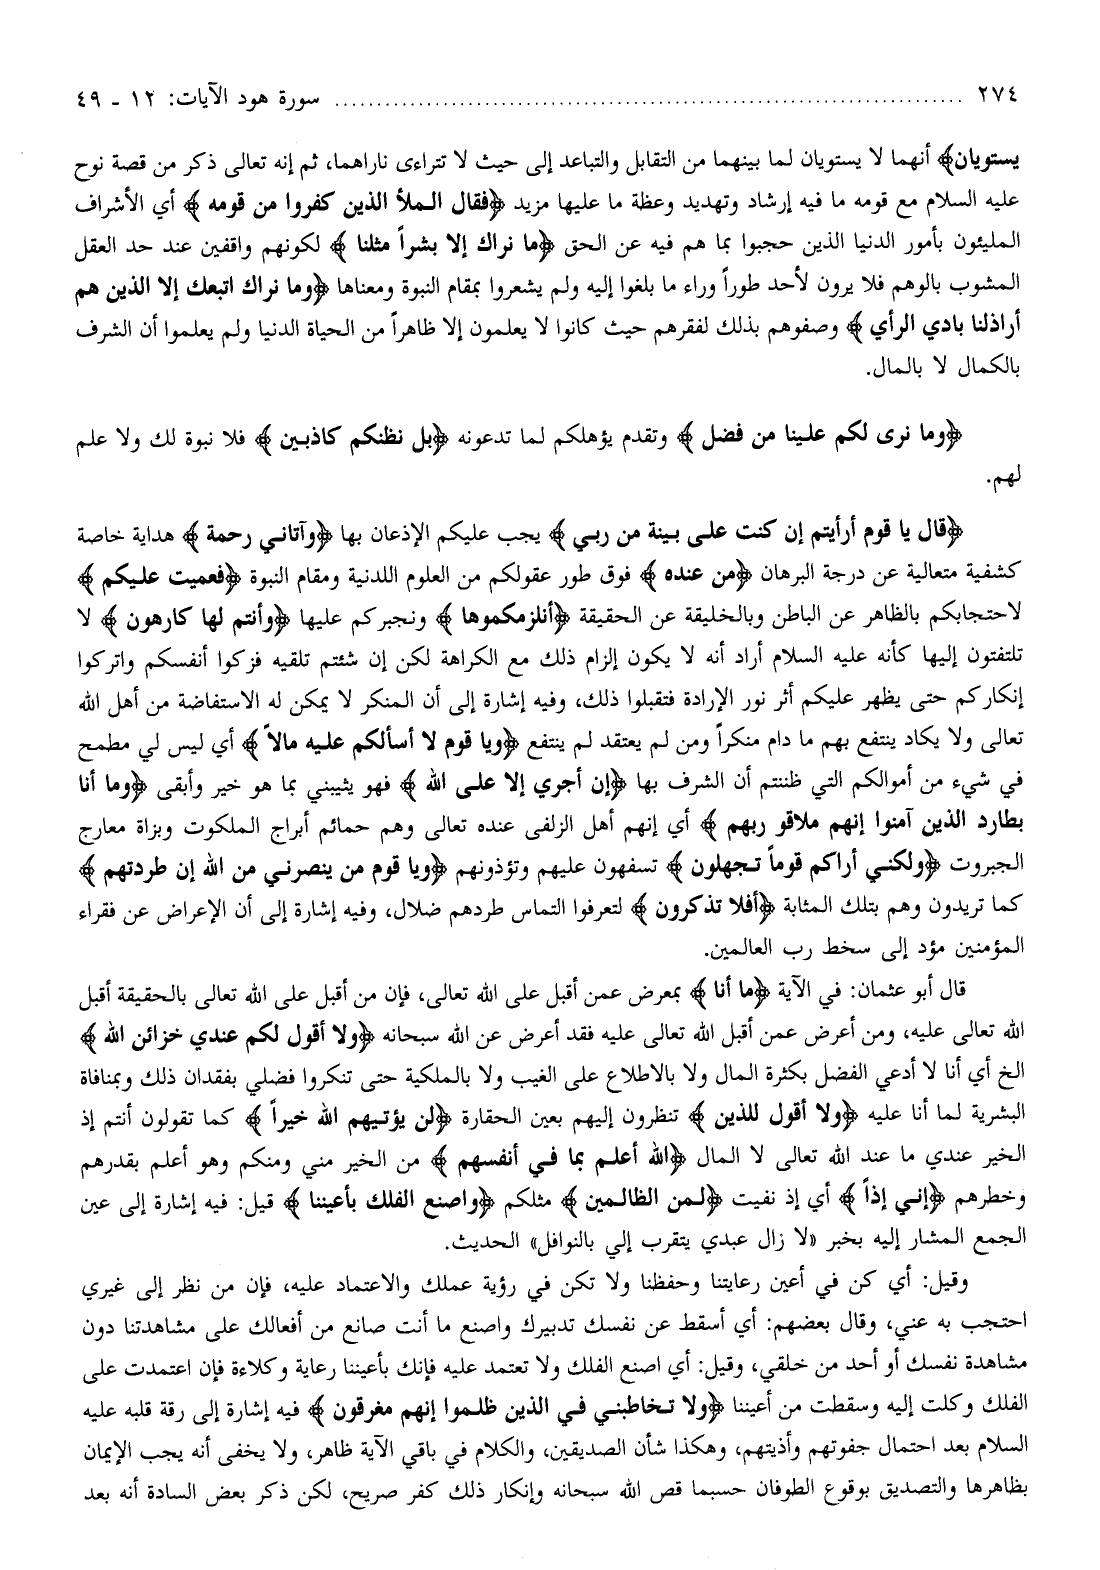 ٢٧٤ ........................................................................ سورة هود الآيات: ١٢ - ٤٩
يستويان﴾ أنهما لا يستويان لما بينهما من التقابل والتباعد إلى حيث لا تتراءى ناراهما، ثم إنه تعالى ذكر من قصة نوح
عليه السلام مع قومه ما فيه إرشاد وتهديد وعظة ما عليها مزيد ﴿فقال الملأ الذين كفروا من قومه﴾ أي الأشراف
المليئون بأمور الدنيا الذين حجبوا بما هم فيه عن الحق ﴿ما نراك إلا بشراً مثلنا﴾ لكونهم واقفين عند حد العقل
المشوب بالوهم فلا يرون لأحد طوراً وراء ما بلغوا إليه ولم يشعروا بمقام النبوة ومعناها ﴿وما نراك اتبعك إلا الذين هم
أراذلنا بادي الرأي﴾ وصفوهم بذلك لفقرهم حيث كانوا لا يعلمون إلا ظاهراً من الحياة الدنيا ولم يعلموا أن الشرف
بالكمال لا بالمال.
﴿وما نرى لكم علينا من فضل﴾ وتقدم يؤهلكم لما تدعونه ﴿بل نظنكم كاذبين﴾ فلا نبوة لك ولا علم
لهم.
﴿قال يا قوم أرأيتم إن كنت على بينة من ربي﴾ يجب عليكم الإذعان بها ﴿وآتاني رحمة﴾ هداية خاصة
كشفية متعالية عن درجة البرهان ﴿من عنده﴾ فوق طور عقولكم من العلوم اللدنية ومقام النبوة ﴿فعميت عليكم﴾
لاحتجابكم بالظاهر عن الباطن وبالخليقة عن الحقيقة ﴿أنلزمكموها﴾ ونجبركم عليها ﴿وأنتم لها كارهون﴾ لا
تلتفتون إليها كأنه عليه السلام أراد أنه لا يكون إلزام ذلك مع الكراهة لكن إن شئتم تلقيه فزكوا أنفسكم واتركوا
إنكاركم حتى يظهر عليكم أثر نور الإرادة فتقبلوا ذلك، وفيه إشارة إلى أن المنكر لا يمكن له الاستفاضة من أهل الله
تعالى ولا يكاد ينتفع بهم ما دام منكراً ومن لم يعتقد لم ينتفع ﴿ويا قوم لا أسألكم عليه مالاً﴾ أي ليس لي مطمح
في شيء من أموالكم التي ظننتم أن الشرف بها ﴿إن أجري إلا على الله﴾ فهو يثيبني بما هو خير وأبقى ﴿وما أنا
بطارد الذين آمنوا إنهم ملاقو ربهم﴾ أي إنهم أهل الزلفى عنده تعالى وهم حمائم أبراج الملكوت وبزاة معارج
الجبروت ﴿ولكني أراكم قوماً تجهلون﴾ تسفهون عليهم وتؤذونهم ﴿ويا قوم من ينصرني من الله إن طردتهم﴾
كما تريدون وهم بتلك المثابة ﴿أفلا تذكرون﴾ لتعرفوا التماس طردهم ضلال، وفيه إشارة إلى أن الإعراض عن فقراء
المؤمنين مؤد إلى سخط رب العالمين.
قال أبو عثمان: في الآية ﴿ما أنا﴾ بمعرض عمن أقبل على الله تعالى، فإن من أقبل على الله تعالى بالحقيقة أقبل
الله تعالى عليه، ومن أعرض عمن أقبل الله تعالى عليه فقد أعرض عن الله سبحانه ﴿ولا أقول لكم عندي خزائن الله﴾
الخ أي أنا لا أدعي الفضل بكثرة المال ولا بالاطلاع على الغيب ولا بالملكية حتى تنكروا فضلي بفقدان ذلك وبمنافاة
البشرية لما أنا عليه ﴿ولا أقول للذين﴾ تنظرون إليهم بعين الحقارة ﴿لن يؤتيهم الله خيراً﴾ كما تقولون أنتم إذ
الخير عندي ما عند الله تعالى لا المال ﴿الله أعلم بما في أنفسهم﴾ من الخير مني ومنكم وهو أعلم بقدرهم
وخطرهم ﴿إني إذاً﴾ أي إذ نفيت ﴿لمن الظالمين﴾ مثلكم ﴿واصنع الفلك بأعيننا﴾ قيل: فيه إشارة إلى عين
الجمع المشار إليه بخبر «لا زال عبدي يتقرب إلي بالنوافل» الحديث.
وقيل: أي كن في أعين رعايتنا وحفظنا ولا تكن في رؤية عملك والاعتماد عليه، فإن من نظر إلى غيري
احتجب به عني، وقال بعضهم: أي أسقط عن نفسك تدبيرك واصنع ما أنت صانع من أفعالك على مشاهدتنا دون
مشاهدة نفسك أو أحد من خلقي، وقيل: أي اصنع الفلك ولا تعتمد عليه فإنك بأعيننا رعاية وكلاءة فإن اعتمدت على
الفلك وكلت إليه وسقطت من أعيننا ﴿ولا تخاطبني في الذين ظلموا إنهم مغرقون﴾ فيه إشارة إلى رقة قلبه عليه
السلام بعد احتمال جفوتهم وأذيتهم، وهكذا شأن الصديقين، والكلام في باقي الآية ظاهر، ولا يخفى أنه يجب الإيمان
بظاهرها والتصديق بوقوع الطوفان حسبما قص الله سبحانه وإنكار ذلك كفر صريح، لكن ذكر بعض السادة أنه بعد